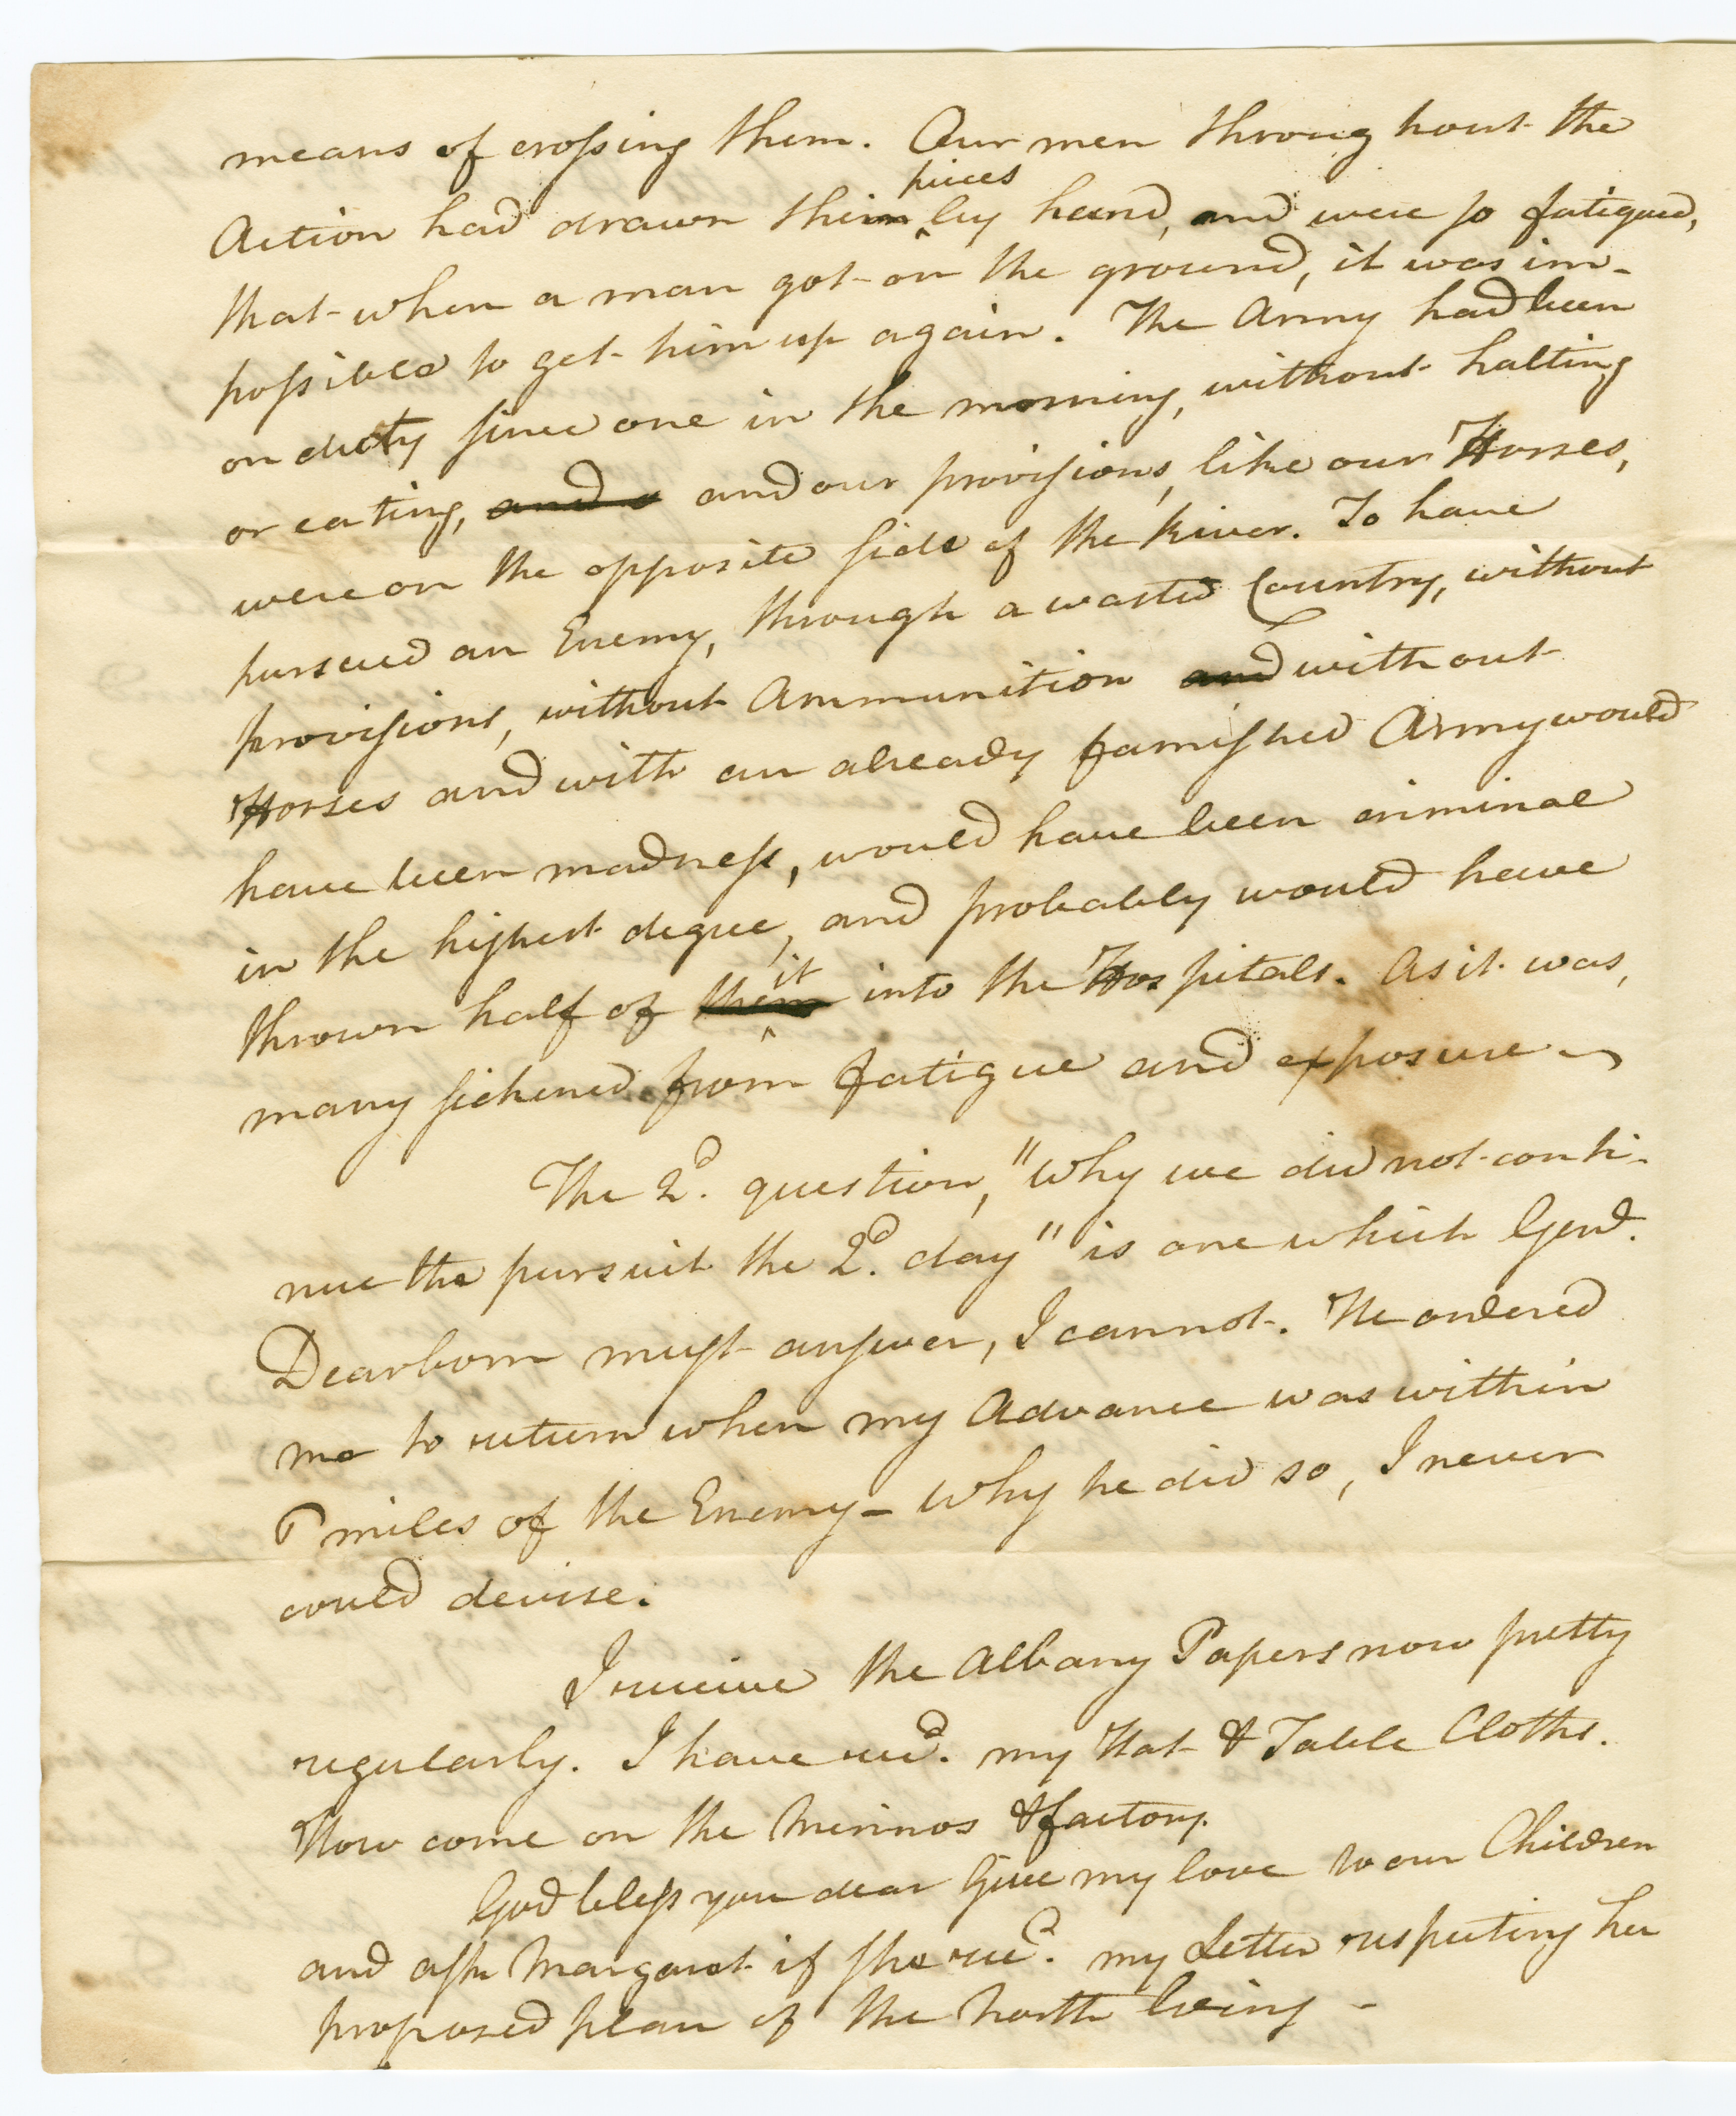 means of crossing them. Our men throughout the
Action had drawn their pieces by hand, and were so fatigued,
that when a man got on the ground, it was im-
possible to get him up again. The Army had been
on duty since one in the morning, without halting
or eating, and our provisions, like our Horses,
were on the opposite side of the River. To have
pursued an Enemy, through a wasted Country, without
provisions, without Ammunition and without
Horses and with an already famished Army would
have been madness, would have been criminal
in the highest degree, and probably would have
thrown half of it into the Hospitals. As it was,
many sickened from fatigue and exposure—
The 2d. question, "Why we did not conti-
nue the pursuit the 2d. day" is one which Genl.
Dearborn must answer, I cannot. He ordered
me to return when my Advance was within
miles of the Enemy— Why he did so, I never
could devise.
I receive the Albany Papers now pretty
regularly. I have recd. my Hat & Table Cloths.
How come on the Merinos & factory.
God bless you dear Give my love to our Children
and ask Margaret if she recd. my Letter respecting her
proposed plan of the North Wing—